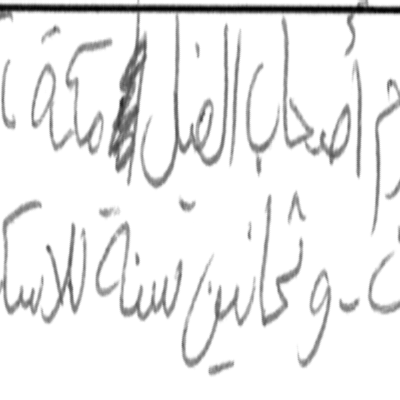 أصحاب الفيل مكة
وثمانين سنة للاسك